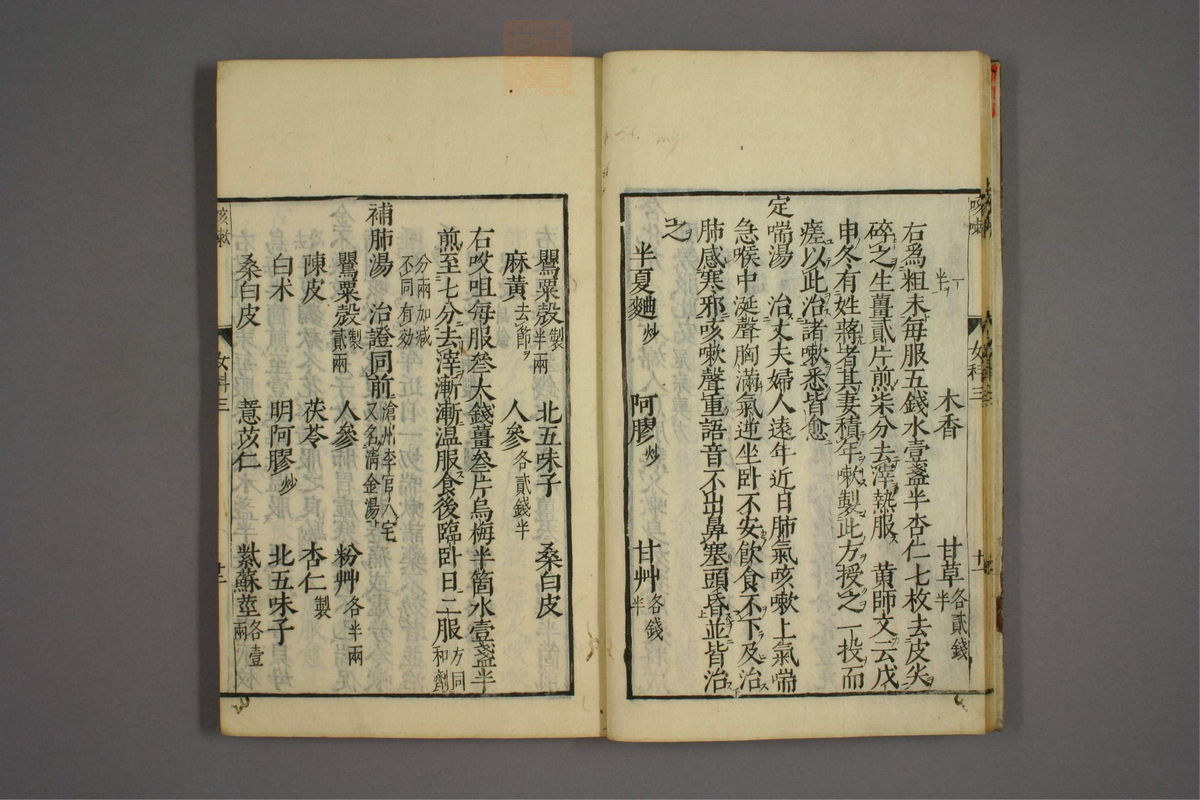 木香　甘草各貳錢半
右爲粗末每服五錢水壹盞半杏仁七枚去皮尖
碎之生薑貳片煎柒分去滓熱服　黃師文云戊
申冬有姓蔣者其妻積年嗽製此方授之一投而
瘥以此治諸嗽悉皆愈
定喘湯　治丈夫婦人遠年近日肺氣咳嗽上氣喘
急喉中涎聲胸滿氣逆坐卧不安飲食不下及治
肺感寒邪咳嗽聲重語音不出鼻塞頭昏並皆治
之
半夏麯炒　阿膠炒　甘艸各錢半
女科三
罌粟殼製半兩　北五味子　桑白皮
麻黃去節　人參各貳錢半
右㕮咀每服叁大錢薑叁片烏梅半箇水壹盞半
煎至七分去滓漸漸温服食後臨卧日二服方同和劑
分兩加减不同有効
補肺湯　治證同前滄州李官人宅又名清金湯
罌粟殼製貳兩　人參　粉艸各半兩
陳皮　茯苓　杏仁製
白朮　明阿膠炒　北五味子
桑白皮　薏苡仁　紫蘇莖各壹兩
咳嗽　女科三